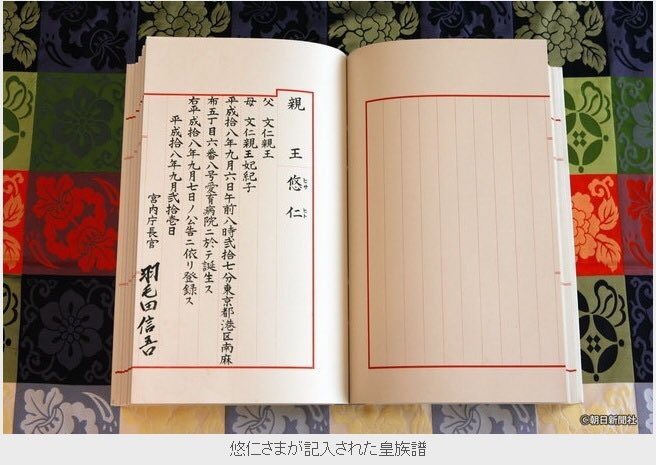 親王悠仁
ヒサ
ヒト
父 文仁親王
母 文仁親王妃紀子
平成拾八年九月六日午前八時弐拾七分東京都港区南麻
布五丁目六番八号愛育病院ニ於テ誕生ス
右平成拾八年九月七日ノ公告ニ依リ登録ス
平成拾八年九月弐拾壱日
宮内庁長官 羽毛田信吾
©朝日新聞社
悠仁さまが記入された皇族譜